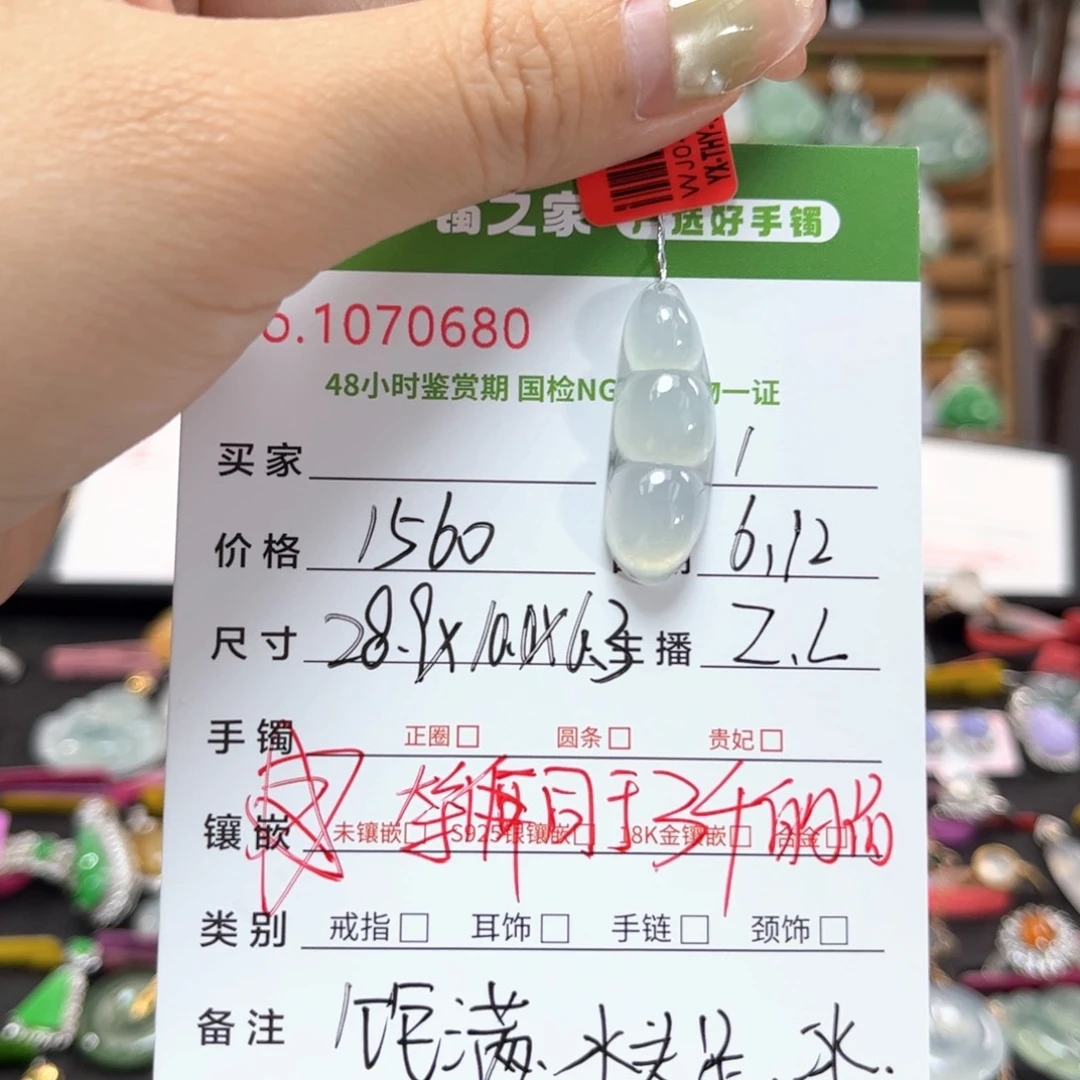 WJ0
YX-THY-
镯之家 严选好手镯
o.1070680
48小时鉴赏期 国检NG 物一证
买家 1
价格 1560 6.12
尺寸 28.9x10.0x6.3 主播 Z.L
手镯 正圈□ 圆条□ 贵妃□
镶嵌 未镶嵌□ S925银镶嵌□ 18K金镶嵌□ 合金□
于3千的
类别 戒指□ 耳饰□ 手链□ 颈饰□
备注 饱满.水头足.水.